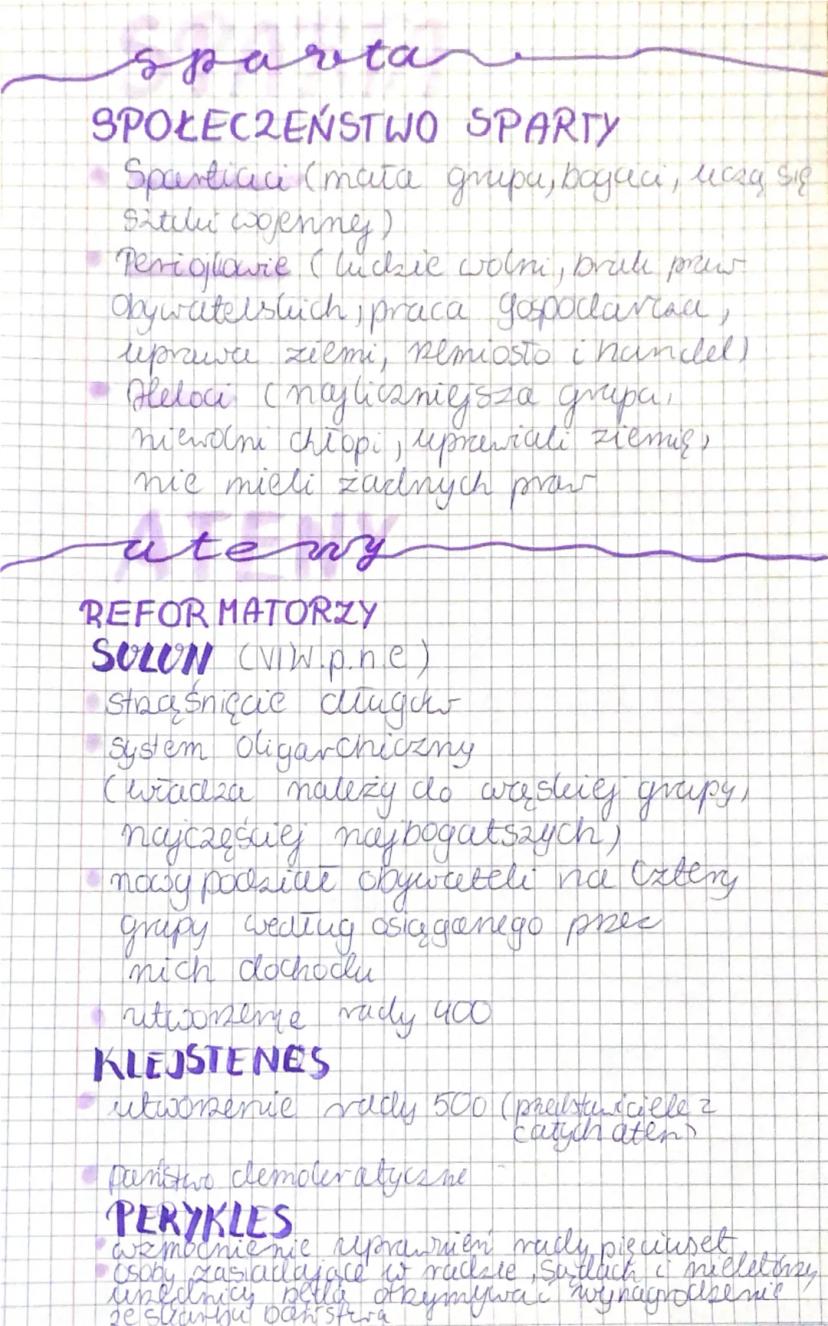 sparta
SPOŁECZEŃSTWO SPARTY
Spartiaci (mała grupa, bogaci, uczą się
sztuki wojennej)
Periojkowie (ludzie wolni, brak praw
obywatelskich, praca gospodarcza,
uprawa ziemi, rzemiosło i handel)
Heloci (najliczniejsza grupa,
niewolni chłopi, uprawiali ziemię,
nie mieli żadnych praw
ateny
REFORMATORZY
SOLON (VI w.p.n.e)
strząśnięcie długów
system oligarchiczny
(władza należy do wąskiej grupy,
najczęściej najbogatszych)
nowy podział obywateli na cztery
grupy według osiąganego przez
nich dochodu
utworzenie rady 400
KLEJSTENES
utworzenie rady 500 (przedstawiciele z
całych aten)
państwo demokratyczne
PERYKLES
wzmocnienie uprawnień rady pięciuset
osoby zasiadające w radzie, sądach i niektórzy
urzędnicy będą otrzymywać wynagrodzenie
ze skarbu państwa